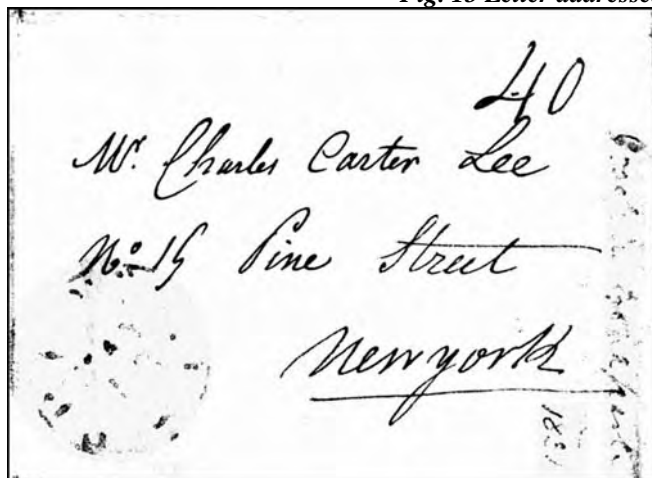 Fig. 15 Letter addressed
40
Mr. Charles Carter Lee
No. 15 Pine Street
Newyork